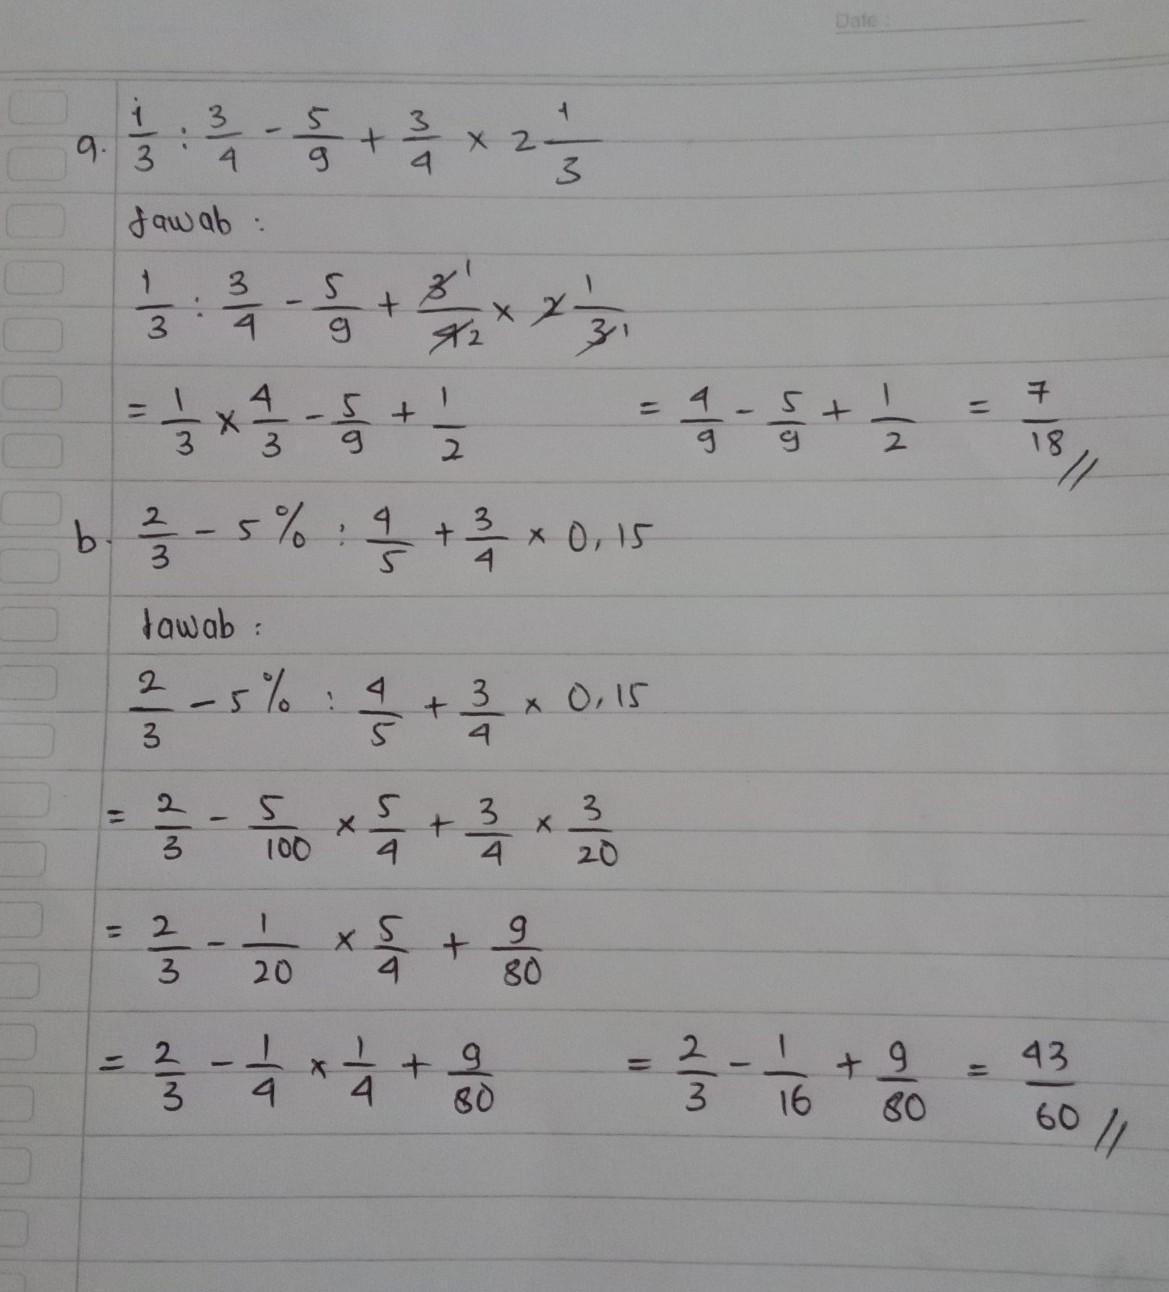 Date :
a. 1/3 : 3/4 - 5/9 + 3/4 × 2 1/3
Jawab :
1/3 : 3/4 - 5/9 + 3̸ 1/4̸ 2 × 2̸ 1/3̸ 1
= 1/3 × 4/3 - 5/9 + 1/2 = 4/9 - 5/9 + 1/2 = 7/18 //
b. 2/3 - 5% : 4/5 + 3/4 × 0,15
Jawab :
2/3 - 5% : 4/5 + 3/4 × 0,15
= 2/3 - 5/100 × 5/4 + 3/4 × 3/20
= 2/3 - 1/20 × 5/4 + 9/80
= 2/3 - 1/4 × 1/4 + 9/80 = 2/3 - 1/16 + 9/80 = 43/60 //